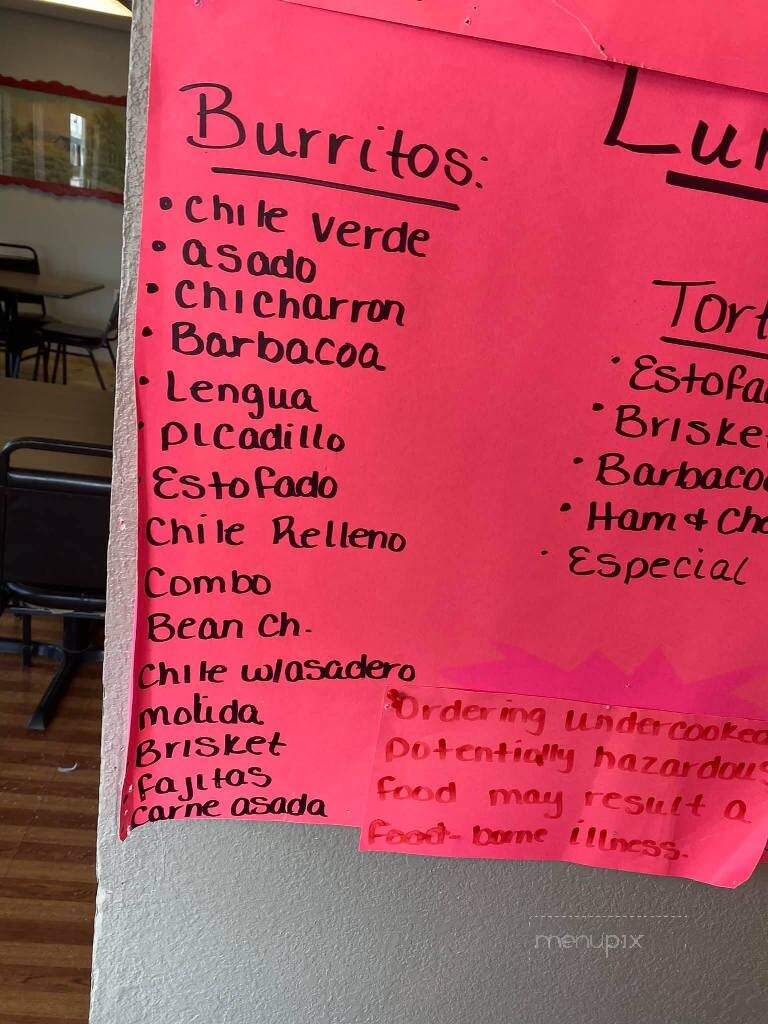 Burritos:
• Chile verde
• asado
• Chicharron
• Barbacoa
• Lengua
• Picadillo
Estofado
Chile Relleno
Combo
Bean Ch.
Chile w/asadero
molida
Brisket
fajitas
Carne asada
• Brisket
• Ham +
• Especial
*Ordering undercooked
potentially hazardous
food may result a
food-borne illness.
menupix